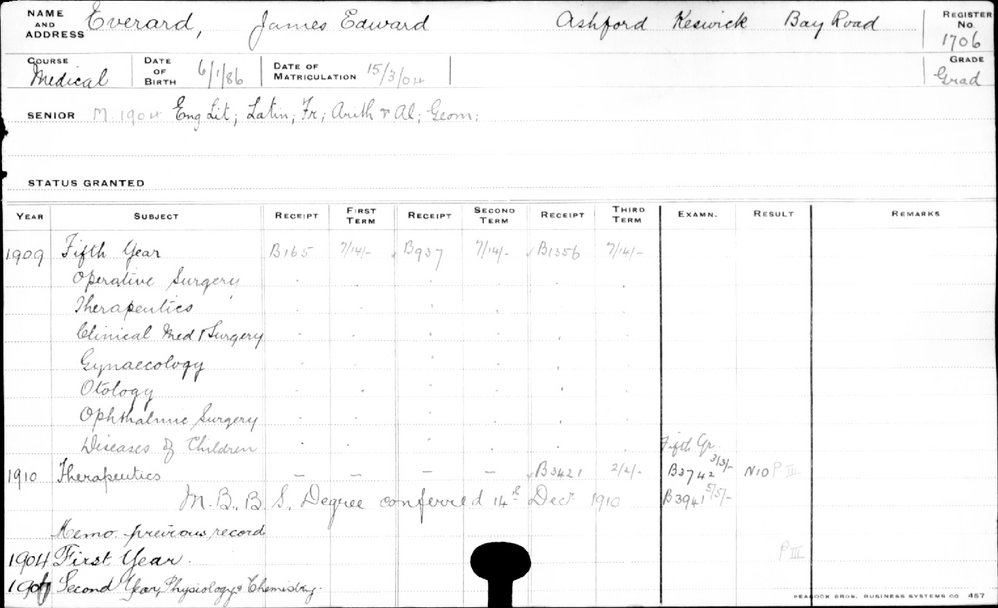 NAME AND ADDRESS Everard, James Edward Ashford Keswick Bay Road REGISTER No. 1706
COURSE Medical DATE OF BIRTH 6/1/86 DATE OF MATRICULATION 15/3/04 GRADE Grad
SENIOR M 1904 Eng Lit; Latin; Fr; Arith & Al; Geom;
STATUS GRANTED
YEAR SUBJECT RECEIPT FIRST TERM RECEIPT SECOND TERM RECEIPT THIRD TERM EXAMN. RESULT REMARKS
1909 Fifth Year B165 7/14/- B937 7/14/- B1356 7/14/-
Operative Surgery
Therapeutics
Clinical Med & Surgery
Gynaecology
Otology
Ophthalmic Surgery
Diseases of Children Fifth Yr.
1910 Therapeutics – – – – B3421 2/2/- B3742 3/3/- N10 P III
M.B., B.S. Degree conferred 14th Decr 1910 B3941 5/5/-
Memo. previous record
1904 First Year. P III
Second Year, Physiology & Chemistry.
PEACOCK BROS. BUSINESS SYSTEMS CO 457